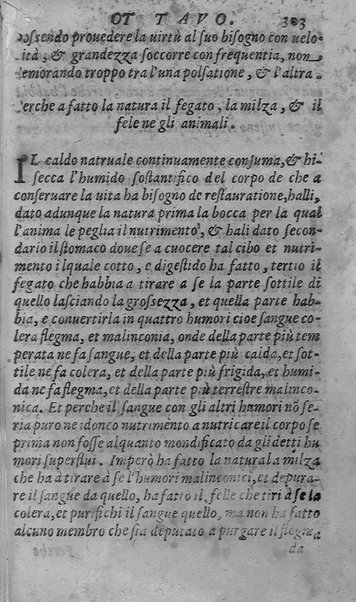 OTTAVO. 303
possendo prouedere la uirtù al suo bisogno con uelo
cità, & grandezza soccorre con frequentia, non
demorando troppo tra l'una polsatione, & l'altra.
Perche a fatto la natura il fegato, la milza, & il
fele ne gli animali.
IL caldo natruale continuamente consuma, & hi
secca l'humido sostantifico del corpo de che a
conseruare la uita ha bisogno de restauratione, halli,
dato adunque la natura prima la bocca per la qual
l'anima le peglia il nutrimento, & hali dato secon-
dario il stomaco doue se a cuocere tal cibo et nutri-
mento ilquale cotto, e digestido ha fatto, tertio il
fegato che habbia a tirare a se la parte sottile di
quello lasciando la grossezza, et quella parte hab-
bia, e conuertirla in quattro humori cioe sangue co-
lera flegma, et malinconia, onde della parte piu tem
perata ne fa sangue, et della parte piu calda, et sot-
tile ne fa colera, et della parte piu frigida, et humi-
da ne fa flegma, et della parte piu terrestre malinco-
nica. Et perche il sangue con gli altri humori nõ se-
ria puro ne idoneo nutrimento a nutricare il corpo se
prima non fosse alquanto mondificato da gli detti hu
mori superflui. Imperò ha fatto la natura la milza
che ha à tirare à se l'humori malinconici, et depura-
re il sangue da quello, ha fatto il felle che tiri à se la
colera, et purifichi il sangue quello, ma non ha fatto
alcuno membro che sia deputato a purgare il flegma
da